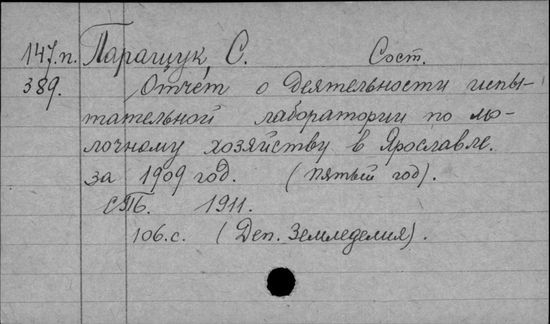 147.п. Паращук, С. Сост.
389. Отчет о деятельности испы-
тательной лаборатории по мо-
лочному хозяйству в Ярославле.
за 1909 год. (пятый год).
СПб. 1911.
106.с. (Деп. Земледелия).